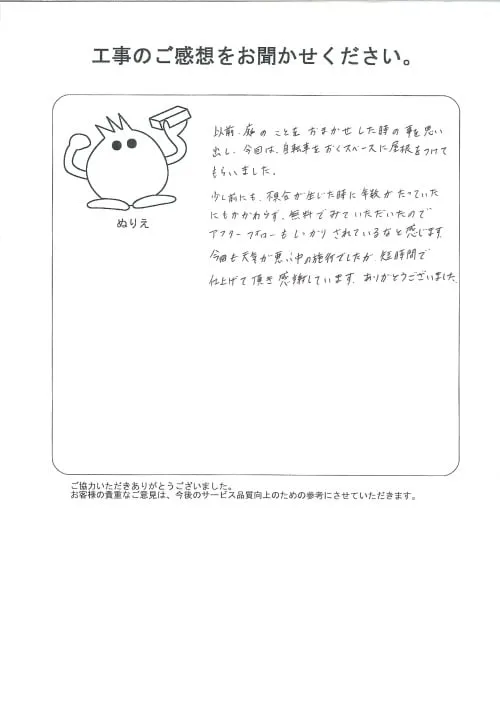 工事のご感想をお聞かせください。
以前、庭のことをおまかせした時の事を思い
出し、今回は、自転車をおくスペースに屋根をつけて
もらいました。
少し前にも、不具合が生じた時に年数がたっていた
にもかかわらず、無料でみていただいたので
アフターフォローもしっかりされているなと感じます。
今回も天気が悪い中の施行でしたが、短時間で
仕上げて頂き感謝しています。ありがとうございました。
ぬりえ
ご協力いただきありがとうございました。
お客様の貴重なご意見は、今後のサービス品質向上のための参考にさせていただきます。